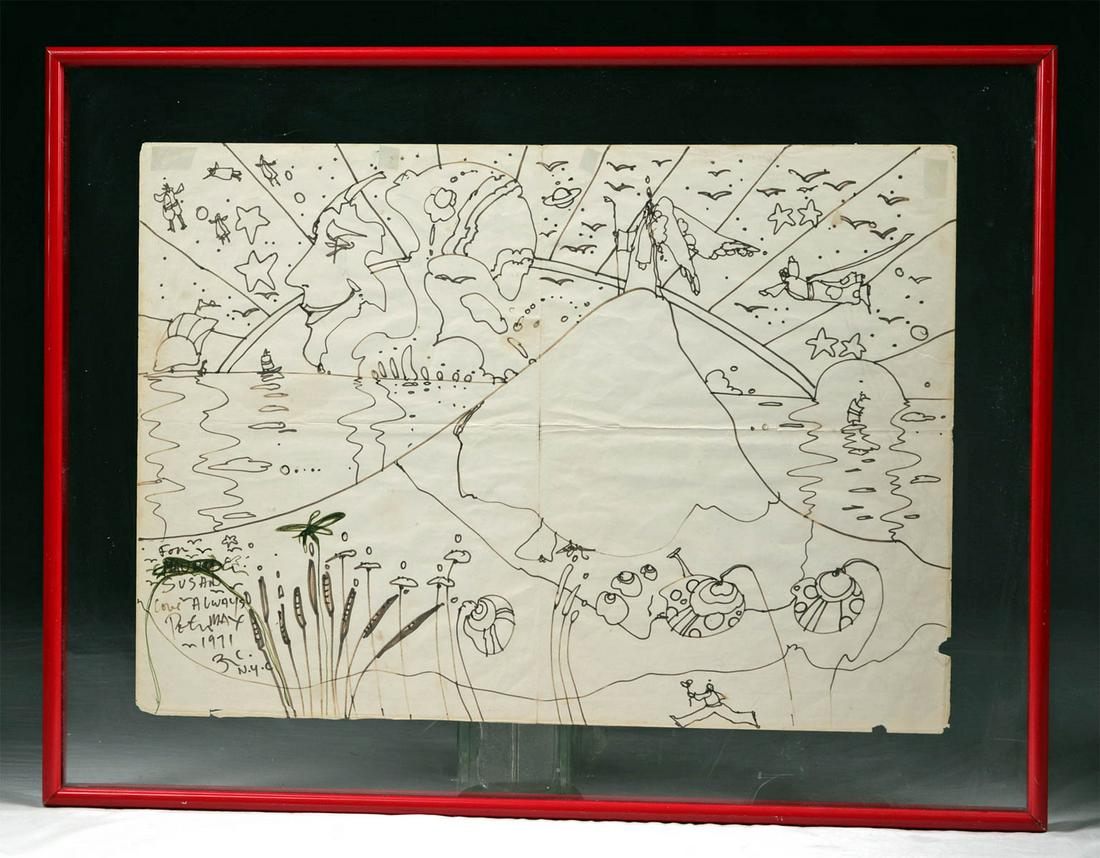 For
SUSAN
Love ALWAYS
PETER MAX
~ 1971
N.Y.C